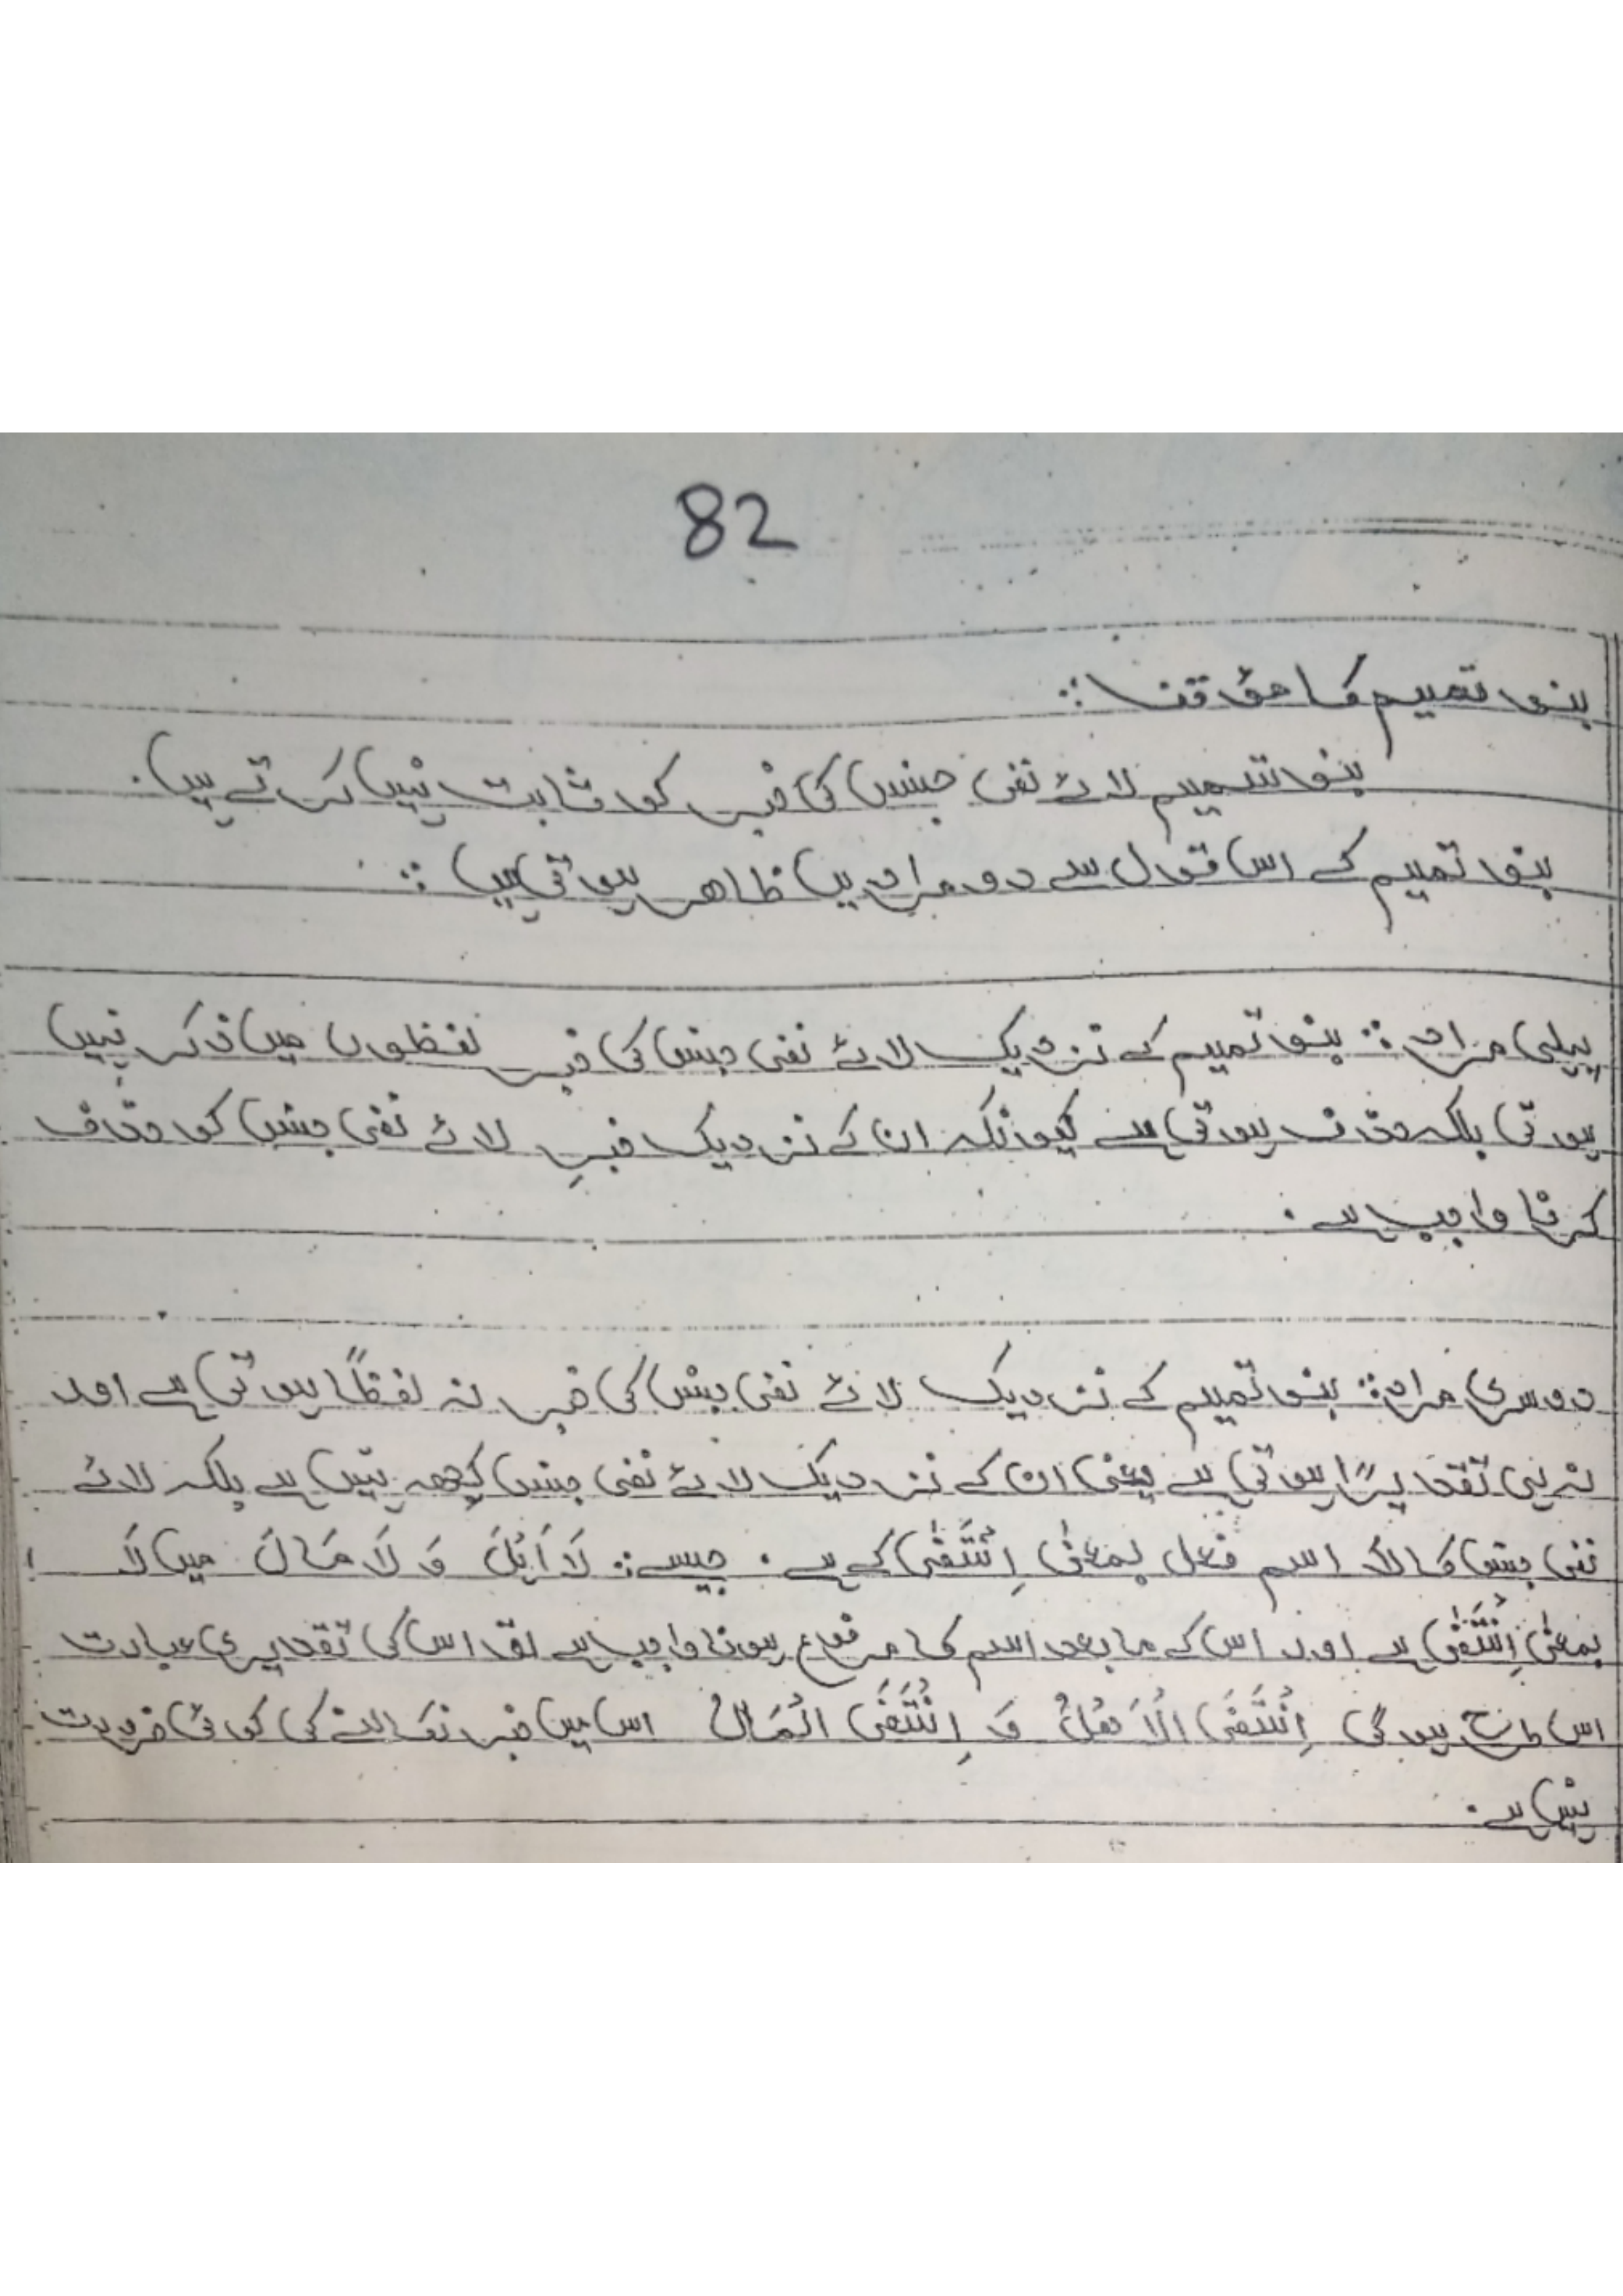 82
بنو تمیم کا مؤقف :
بنو تمیم لائے نفی جنس کی خبر کو ثابت نہیں کرتے ہیں.
بنو تمیم کے اس قول سے دو مرادیں ظاہر ہوتی ہیں :
پہلی مراد : بنو تمیم کے نزدیک لائے نفی جنس کی خبر لفظوں میں ذکر نہیں
ہوتی بلکہ حذف ہوتی ہے کیونکہ ان کے نزدیک خبرِ لائے نفی جنس کو حذف
کرنا واجب ہے.
دوسری مراد : بنو تمیم کے نزدیک لائے نفی جنس کی خبر نہ لفظاً ہوتی ہے اور
نہ ہی تقدیرًا ہوتی ہے یعنی ان کے نزدیک لائے نفی جنس کچھ نہیں ہے بلکہ لائے
نفی جنس کا لا اسم فعل بمعنٰی اِنْتَفٰی کے ہے. جیسے : لَا اَہْلَ وَ لَا مَالَ میں لَا
بمعنٰی اِنْتَفٰی ہے اور اس کے مابعد اسم کا مرفوع ہونا واجب ہے لہٰذا اس کی تقدیری عبارت
اس طرح ہو گی اِنْتَفَی الْاَهْلُ وَ اِنْتَفَی الْمَالُ اس میں خبر نکالنے کی کوئی ضرورت
نہیں ہے.